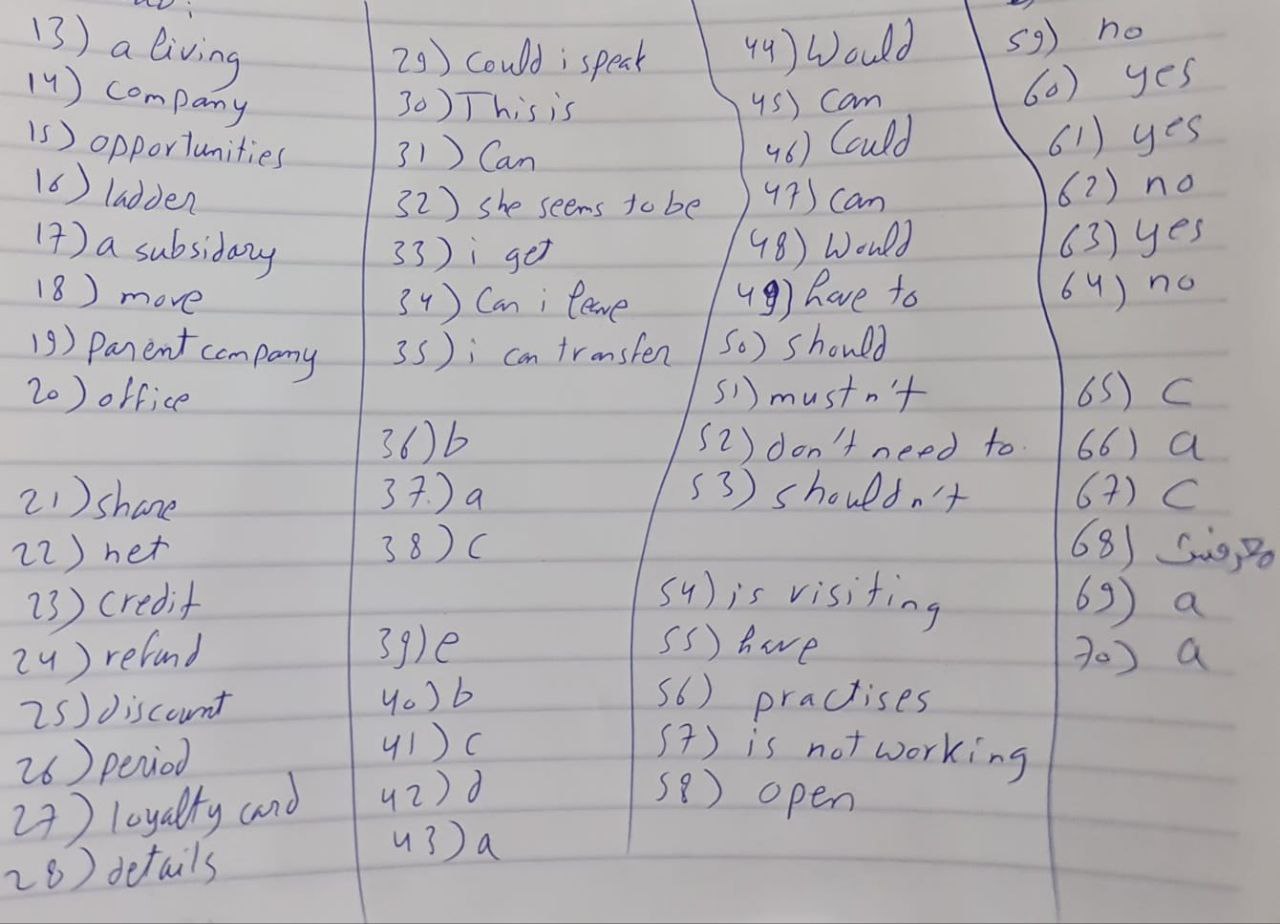 13) a living
14) company
15) opportunities
16) ladder
17) a subsidary
18) move
19) parent company
20) office
21) share
22) net
23) credit
24) refund
25) discount
26) period
27) loyalty card
28) details
29) Could i speak
30) This is
31) Can
32) she seems to be
33) i get
34) Can i leave
35) i can transfer
36) b
37) a
38) c
39) e
40) b
41) c
42) d
43) a
44) Would
45) Can
46) Could
47) can
48) Would
49) have to
50) should
51) mustn't
52) don't need to
53) shouldn't
54) is visiting
55) have
56) practises
57) is not working
58) open
59) no
60) yes
61) yes
62) no
63) yes
64) no
65) C
66) a
67) C
68)
69) a
70) a